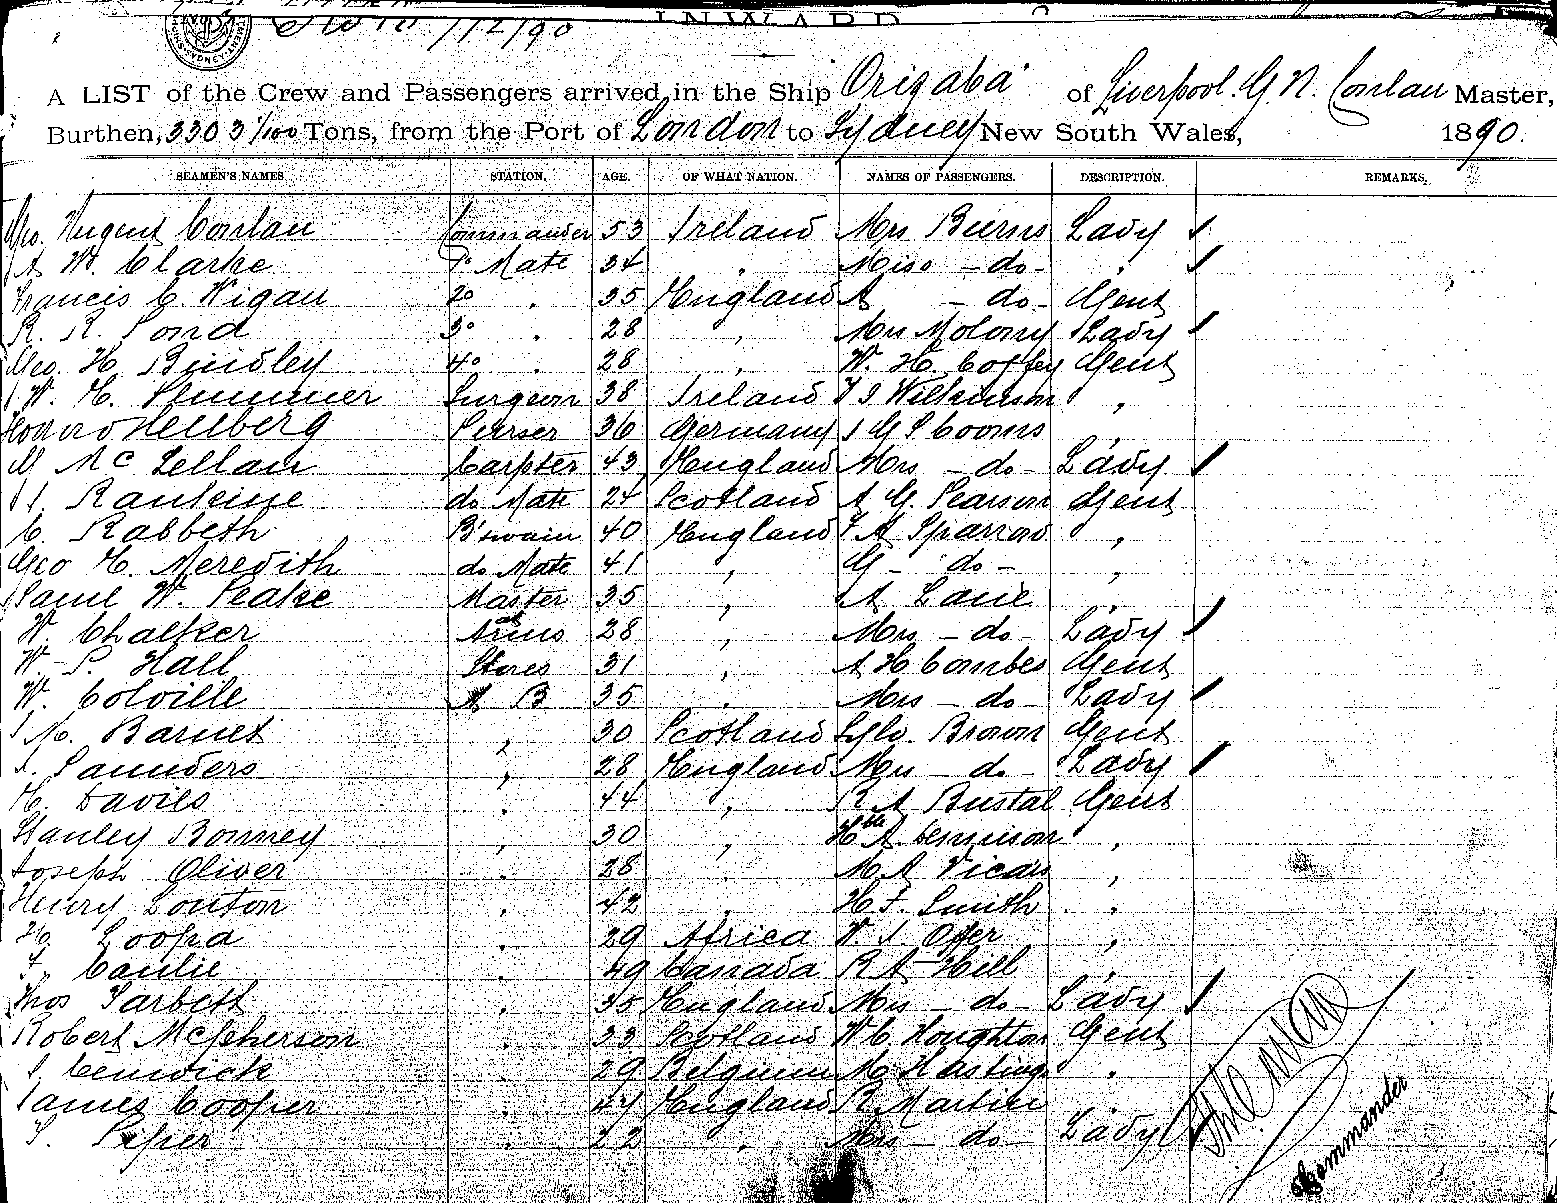 INWARD
/12/90
A LIST of the Crew and Passengers arrived in the Ship "Orizaba" of Liverpool. G. N. Conlan Master,
Burthen, 3303 1/100 Tons, from the Port of London to Sydney New South Wales, 1890.
SEAMEN'S NAMES STATION. AGE. OF WHAT NATION. NAMES OF PASSENGERS. DESCRIPTION. REMARKS.
Geo. Nugent Conlan Commander 53 Ireland Mrs Burns Lady
A W. Clarke 1° Mate 34 " Miss - do - "
Francis C. Wigan 2° " 35 England A - do - Gent
R. R. Pond 3° " 28 " Mrs Molony Lady
Geo. H. Bindley 4° " 28 " W. H. Coffey Gent
W. E. Plummer Surgeon 38 Ireland Wilkinson "
Hellberg Purser 36 Germany J G S Cooms
McLellan Carpter 43 England Mrs - do - Lady
Rankine do Mate 24 Scotland A G. Pearson Gent
C. Rabbeth B'swain 40 England F A Sparrow "
Geo E. Meredith do Mate 41 " G - do - "
Saml W. Peake Master 35 " A Lane "
W. Chalker at Arms 28 " Mrs - do - Lady
W. P. Hall Stores 31 " A H Combes Gent
W. Colville A B 35 " Mrs - do - Lady
Barnet " 30 Scotland Sylv. Brown Gent
Saunders " 28 England Mrs - do - Lady
E. Davies " 44 " R A Bustal Gent
Stanley Bonney " 30 " Hble A. Dennison "
Joseph Oliver " 28 " M A Vicars "
Henry Louton " 42 " H F. Smith "
Loopa " 29 Africa W. J. Offer "
F. Caulie " 49 Canada R A Hill "
Thos Tarbett " 35 England Mrs - do - Lady
Robert McPherson " 33 Scotland W C Houghton Gent
Cenwick " 29 Belgium M Hastings "
James Cooper " 47 England R. Martin
T. Piper " 22 " Mrs - do - Lady
Commander